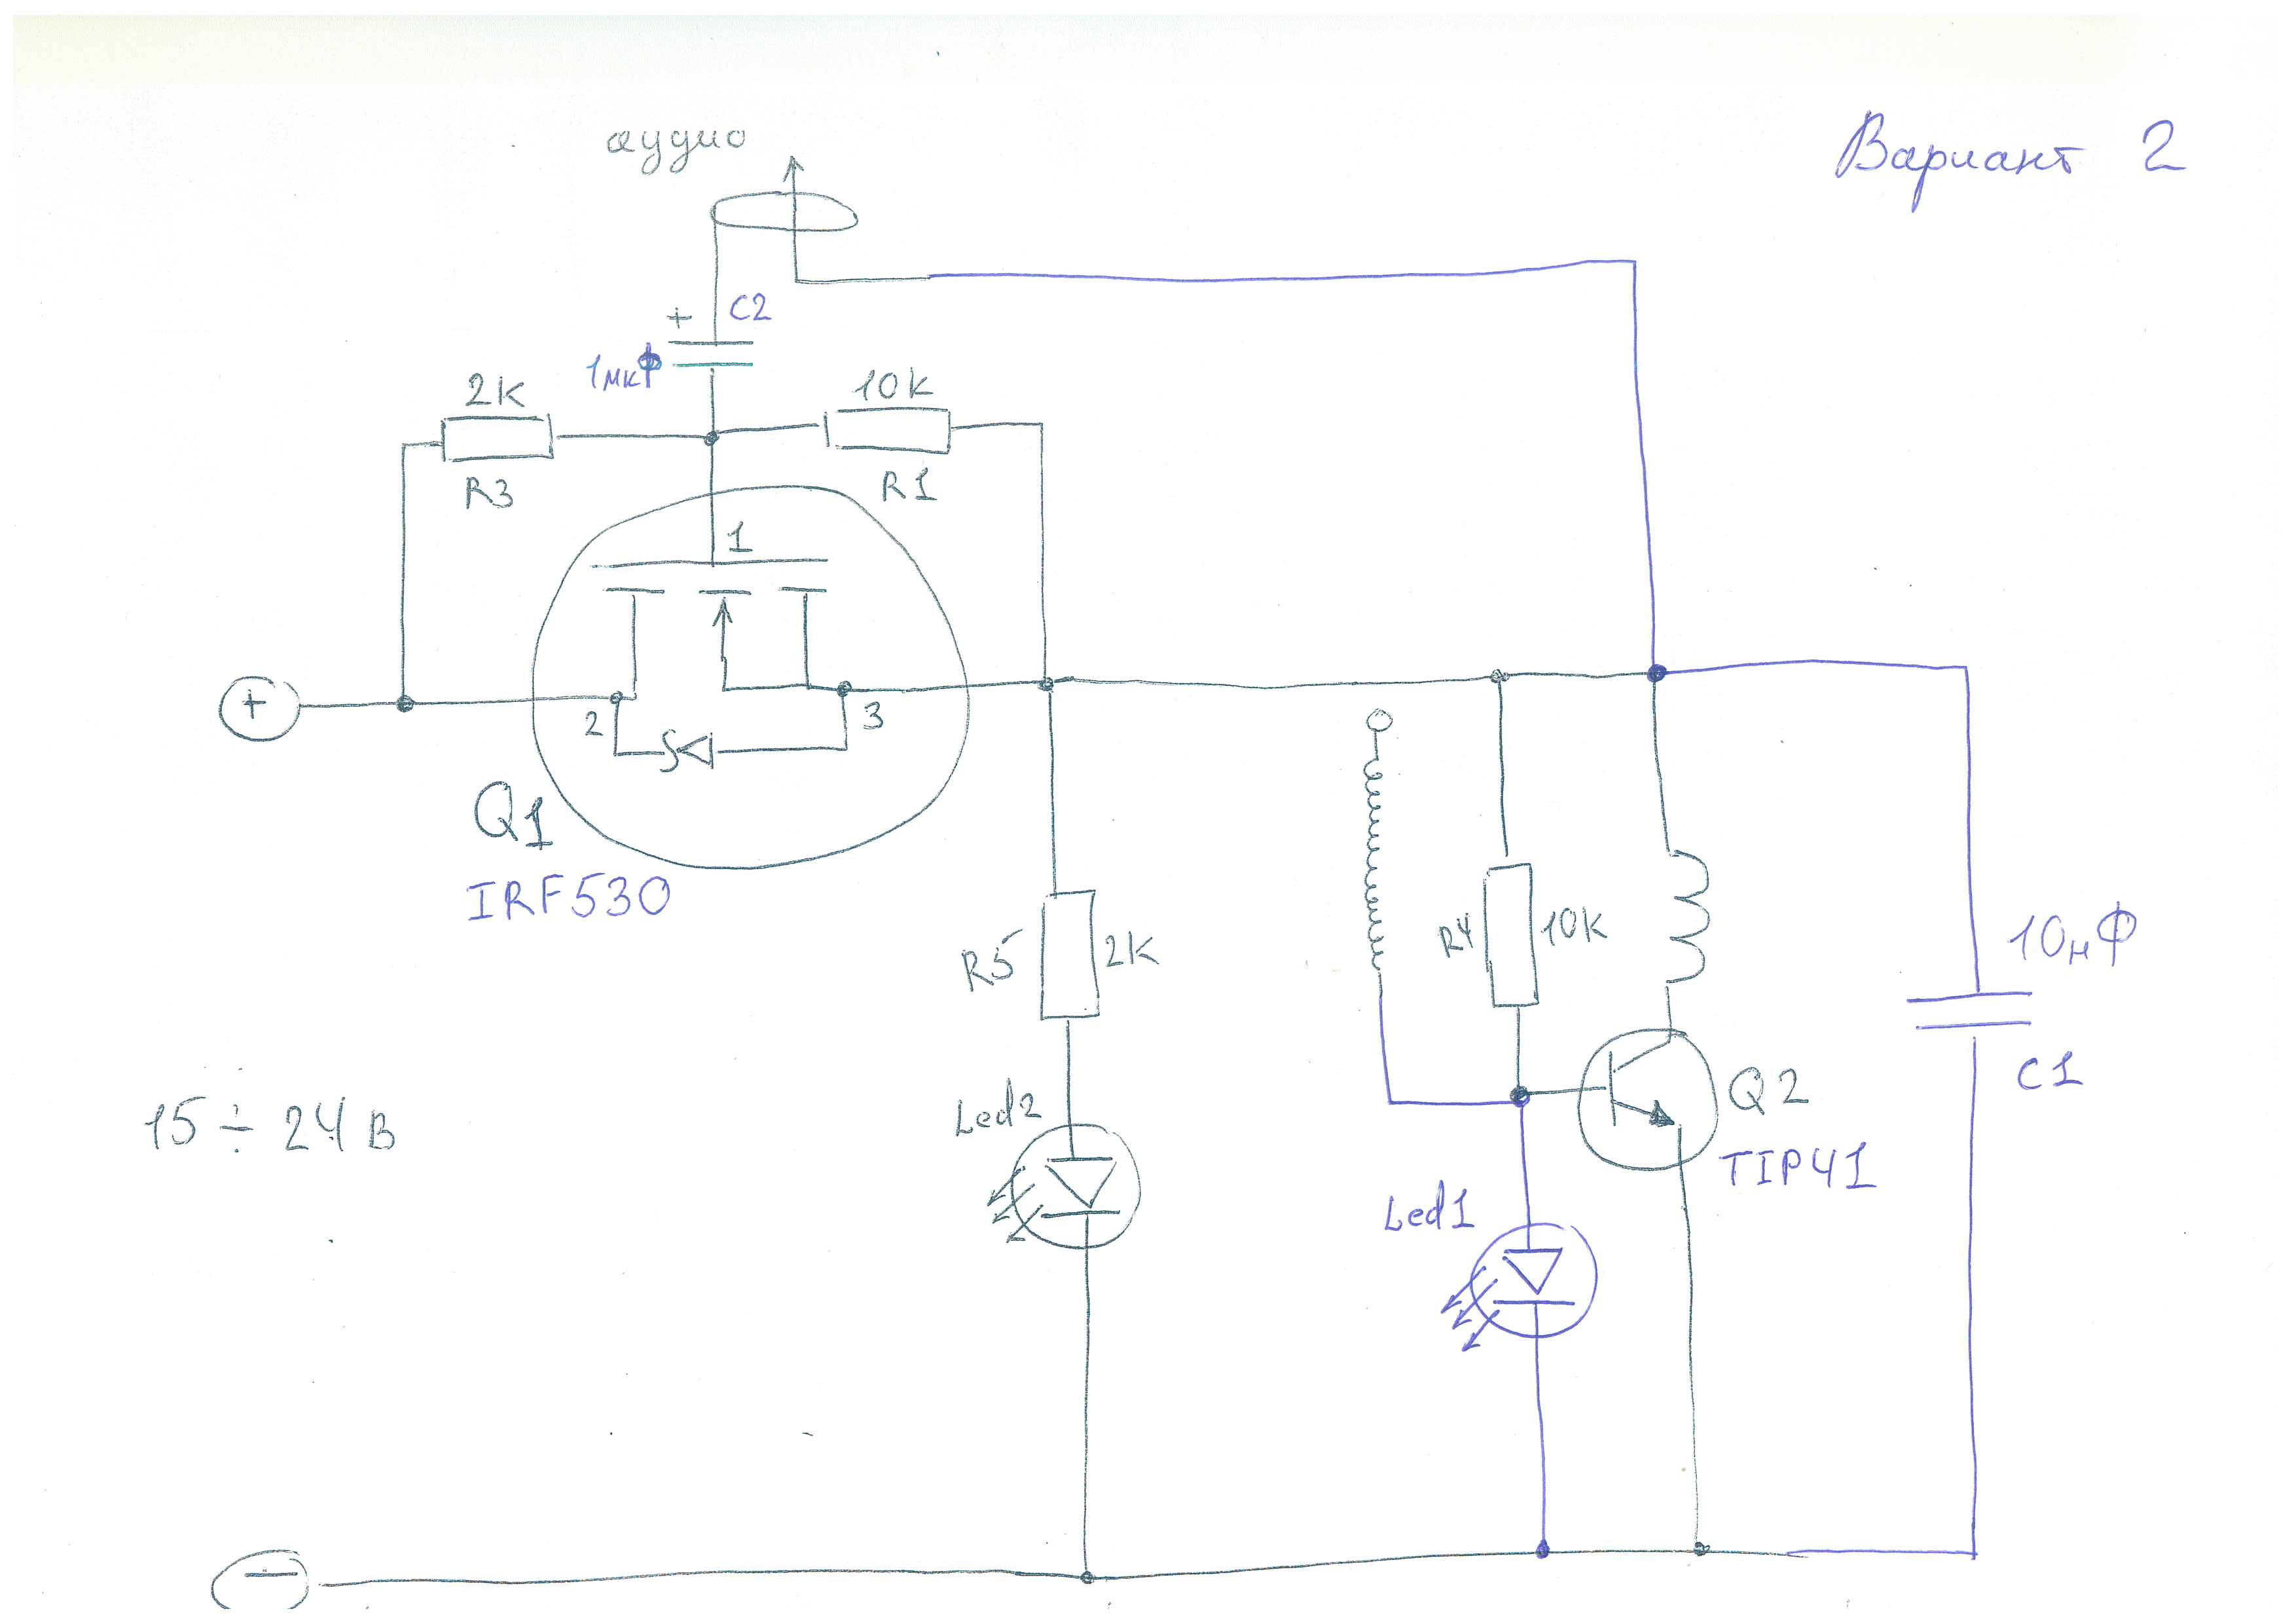 аудио
Вариант 2
+ C2
1мкф
2K
10K
R3
R1
1
+
2
3
Q1
IRF530
R5
2K
R4
10K
10нФ
C1
Led2
Q2
15 ÷ 24 В
TIP41
Led1
−